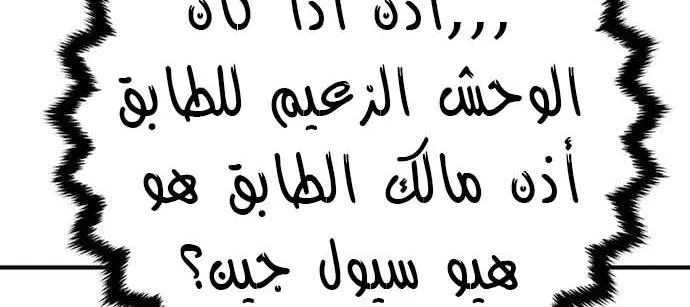 ,,,أذن اذا كان
الوحش الزعيم للطابق
أذن مالك الطابق هو
هيو سيول جين؟